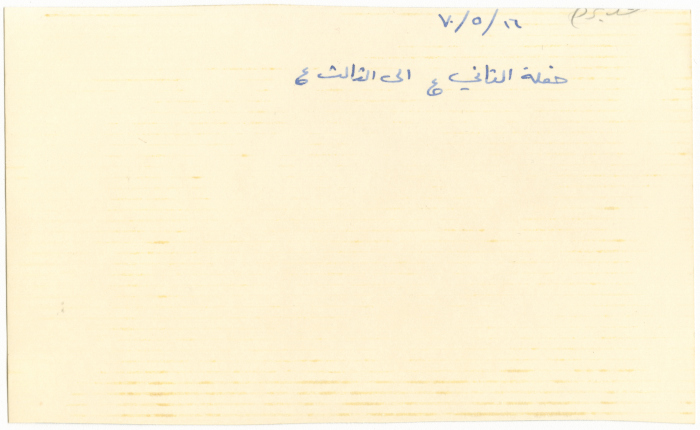 ٧٠/٥/١٦
حفلة الثاني ع الى الثالث ع